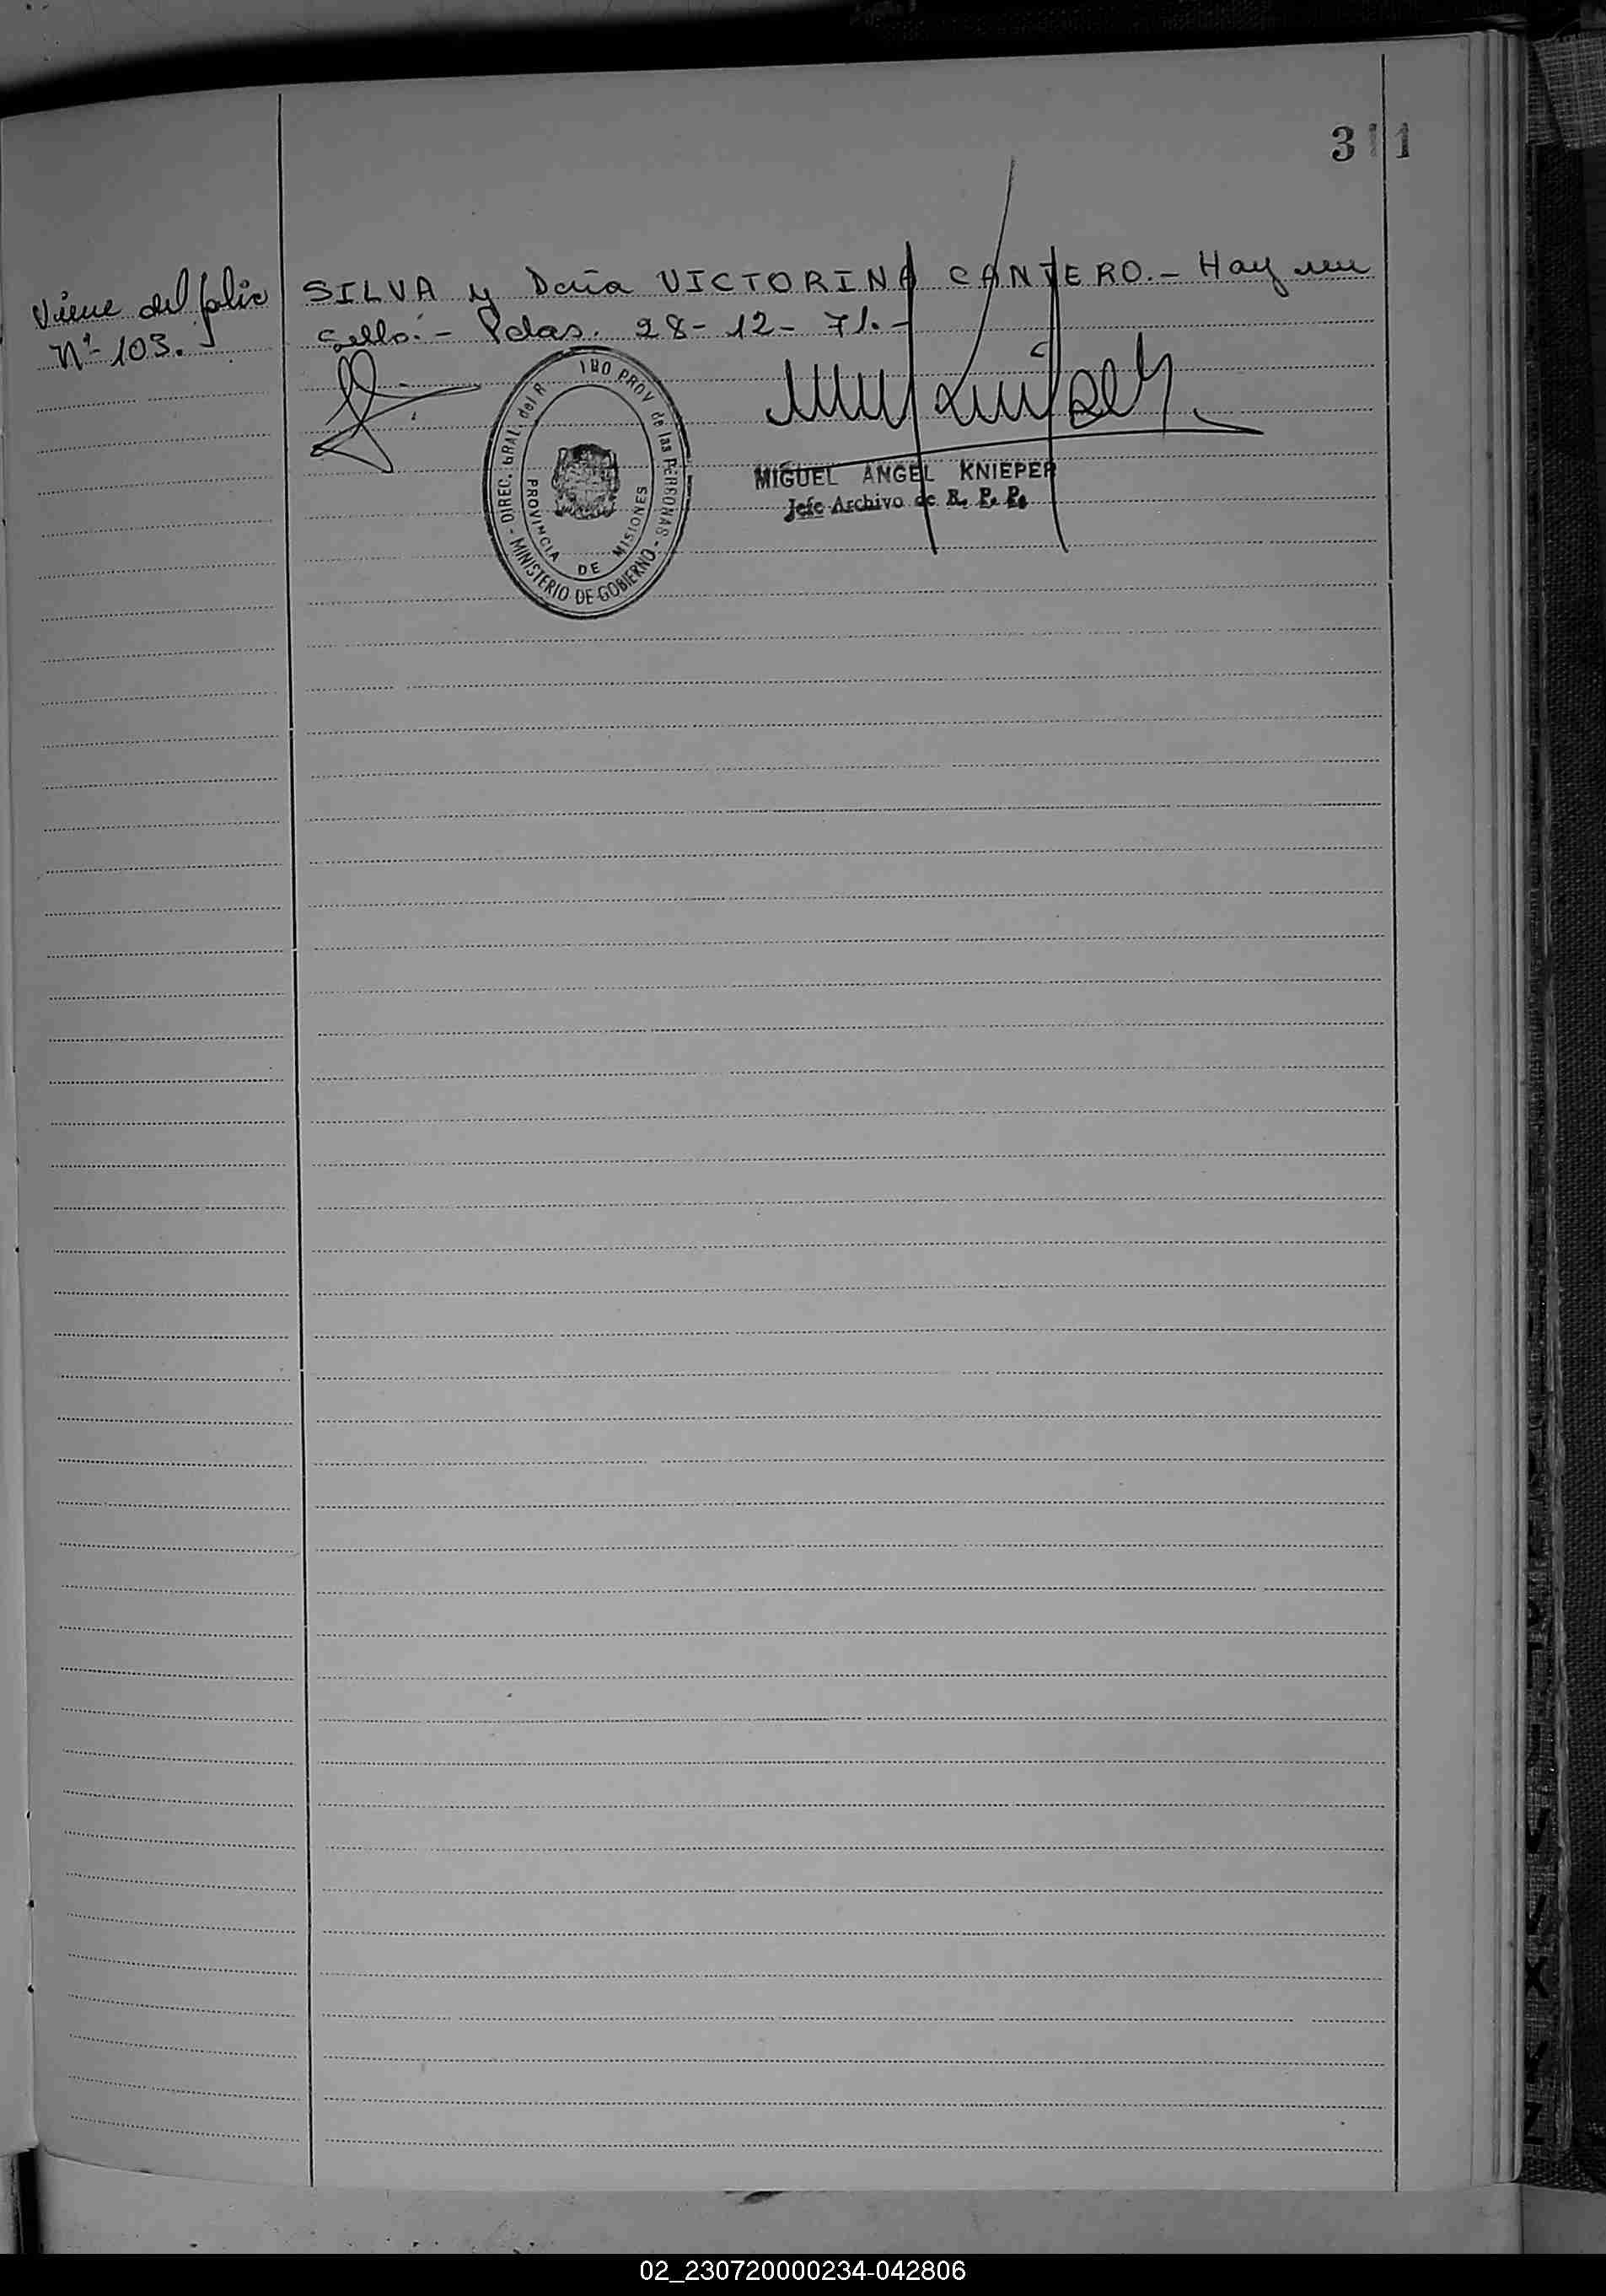 311
Viene del folio
Nº 103.
SILVA y Doña VICTORINA CANTERO.- Hay un
sello.- Pdas. 28-12-71.-
DIREC. GRAL. del R TRO PROV de las PERSONAS - MINISTERIO DE GOBIERNO -
PROVINCIA DE MISIONES
MIGUEL ANGEL KNIEPER
Jefe Archivo de R. P. P.
02_230720000234-042806